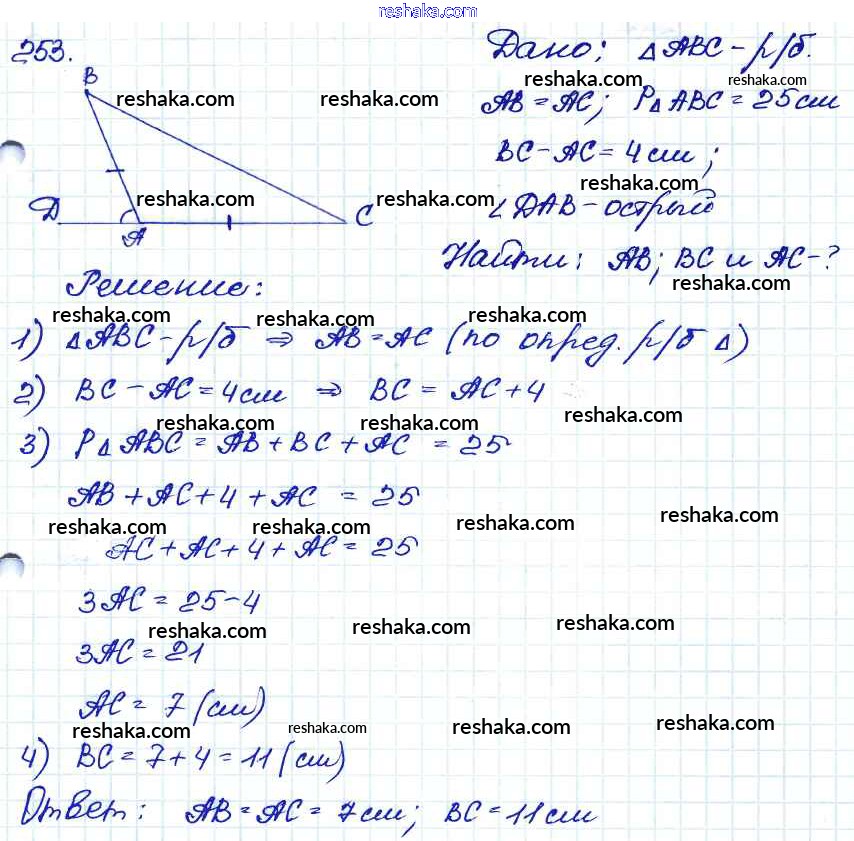 reshaka.com
253.
Дано: △ABC - р/б.
B
reshaka.com reshaka.com reshaka.com reshaka.com
AB = AC; P△ABC = 25 см
BC - AC = 4 см;
reshaka.com reshaka.com reshaka.com
D A C
∠DAB - острый
Найти: AB; BC и AC - ?
reshaka.com reshaka.com reshaka.com
Решение:
reshaka.com reshaka.com reshaka.com
1) △ABC - р/б ⇒ AB = AC (по опред. р/б △)
2) BC - AC = 4 см ⇒ BC = AC + 4
reshaka.com reshaka.com reshaka.com
3) P△ABC = AB + BC + AC = 25
AB + AC + 4 + AC = 25
reshaka.com reshaka.com reshaka.com reshaka.com
AC + AC + 4 + AC = 25
3AC = 25 - 4
reshaka.com reshaka.com reshaka.com
3AC = 21
AC = 7 (см)
reshaka.com reshaka.com reshaka.com reshaka.com
4) BC = 7 + 4 = 11 (см)
Ответ: AB = AC = 7 см; BC = 11 см